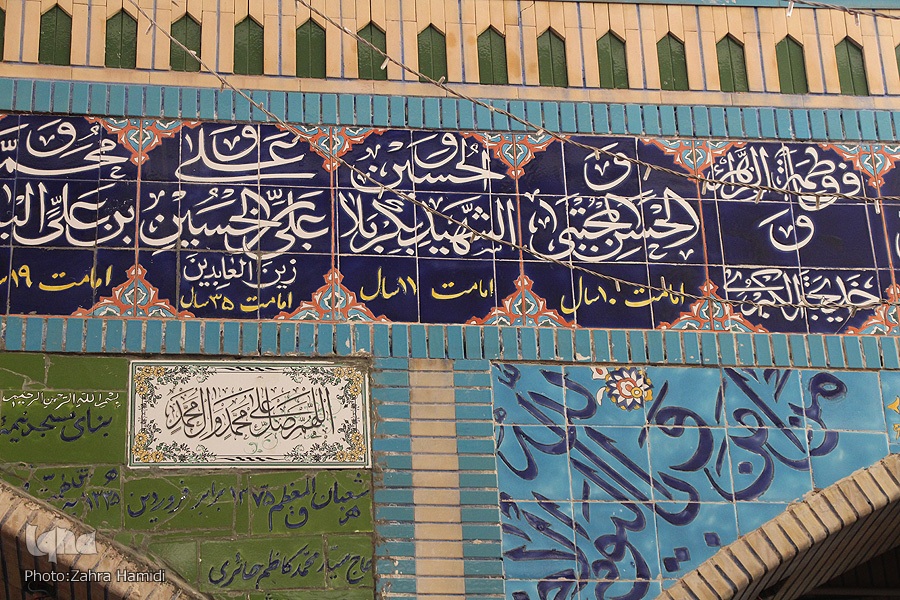 و فاطمة الزهراء
و
خدیجة الکبری
و
الحسن المجتبی
امامت ۱۰ سال
و الحسین
الشهید بکربلا
امامت ۱۱ سال
و علی
علی بن الحسین
زین العابدین
امامت ۳۵ سال
و محمد
بن علی
امامت ۱۹
اللهم صل علی محمد و آل محمد
بسم الله الرحمن الرحیم
بنای مسجد
شعبان المعظم ۱۳۷۵ برابر فروردین
۱۳۳۵
حاج سید محمد کاظم حائری
من آمن بالله
و الیوم الآخر
iqna
Photo:Zahra Hamidi